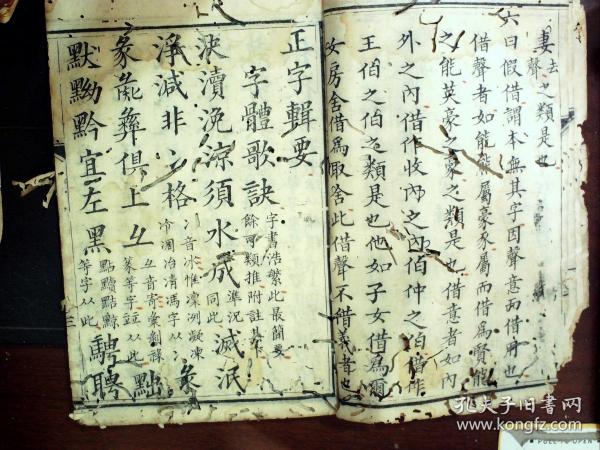 妻去聲之類是也
六曰假借謂本無其字因聲意而借用也
借聲者如能熊屬豪豕屬而借為賢能
之能英豪之豪之類是也借意者如內
外之內借作收內之內伯仲之伯借作
王伯之伯之類是也他如子女借為爾
女房舍借為取舍此借聲不借義者也
正字輯要
字體歌訣 字書浩繁此最簡要 餘可類推附註其下
決瀆浼涼須水成 準況同此 滅泯
淨減非冫格 冫音冰惟凜冽凝凍 冷凋冶清馮字从冫
彖彘彝俱上彑 彑音寄彙劉祿 篆等字竝从此 點
默黝黔宜左黑 點黷黠黥 等字从此 騁聘
三
孔夫子旧書网
www.kongfz.com